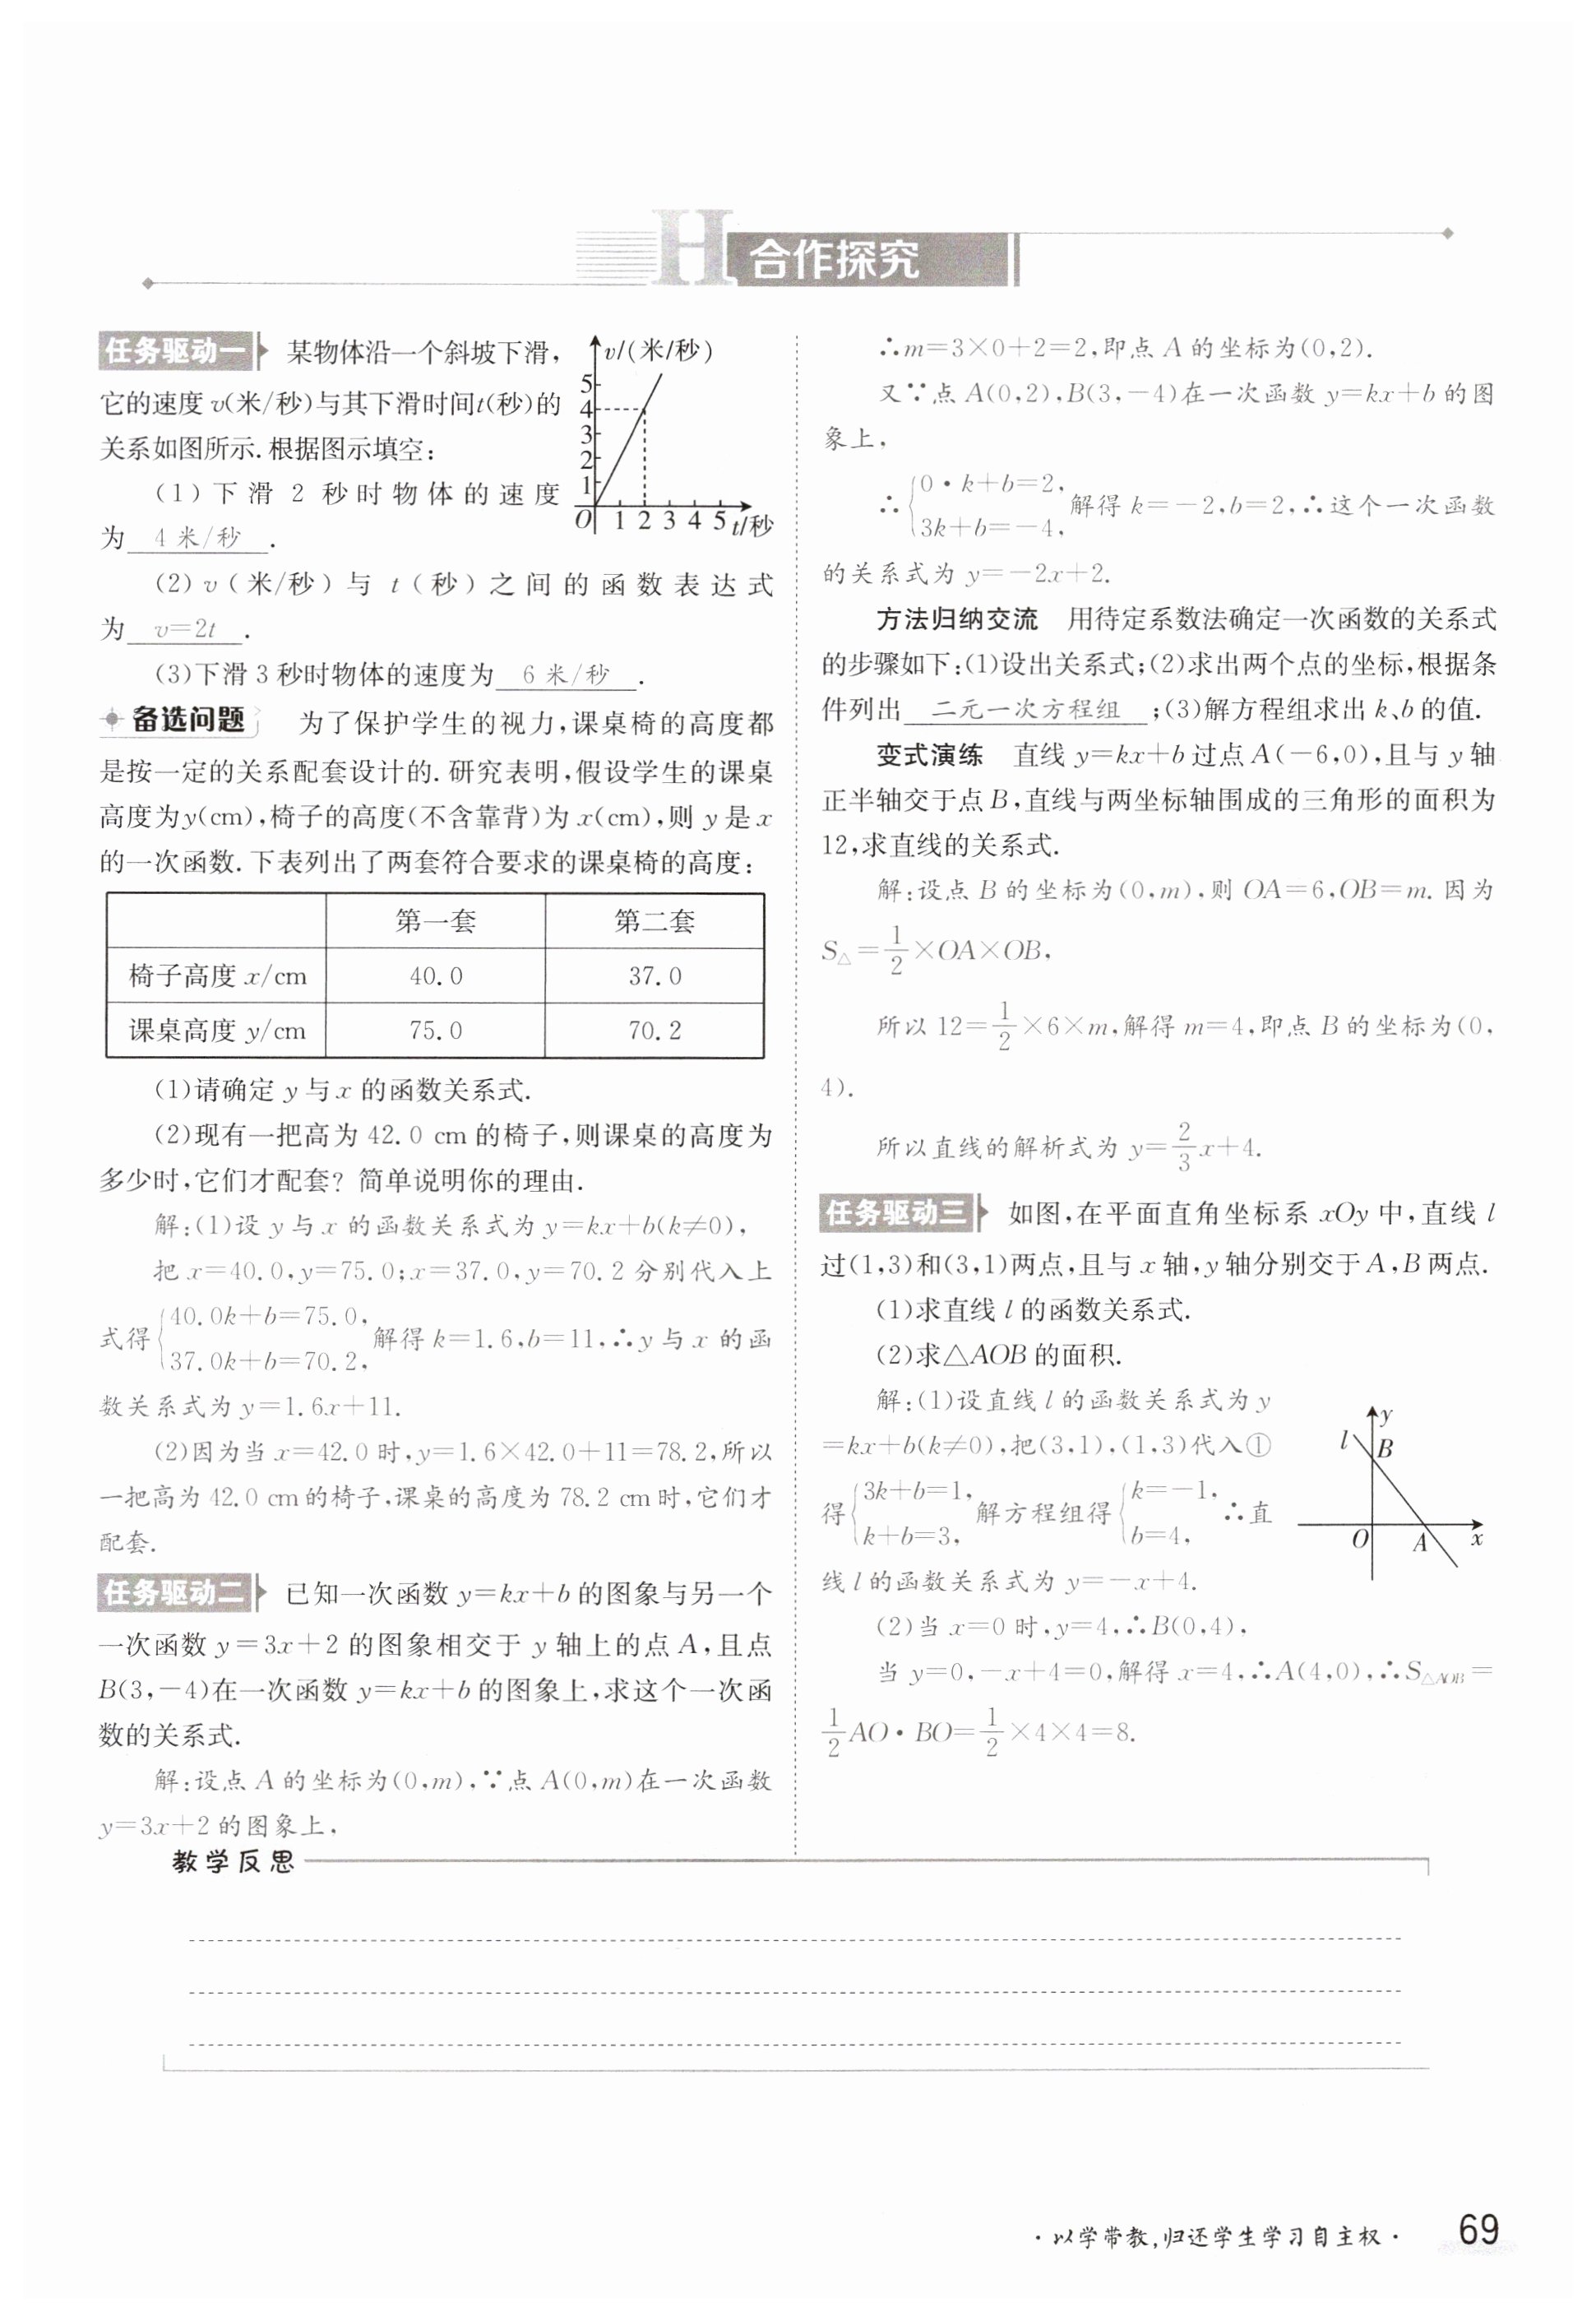 H 合作探究
任务驱动一 某物体沿一个斜坡下滑，
它的速度 v(米/秒)与其下滑时间t(秒)的
关系如图所示.根据图示填空：
(1)下滑 2 秒时物体的速度
为 4 米/秒 .
v/(米/秒)
5
4
3
2
1
O 1 2 3 4 5 t/秒
(2) v(米/秒)与 t(秒)之间的函数表达式
为 v=2t .
(3)下滑 3 秒时物体的速度为 6 米/秒 .
备选问题 为了保护学生的视力，课桌椅的高度都
是按一定的关系配套设计的.研究表明，假设学生的课桌
高度为y(cm)，椅子的高度(不含靠背)为 x(cm)，则 y 是 x
的一次函数.下表列出了两套符合要求的课桌椅的高度：
第一套 第二套
椅子高度 x/cm 40.0 37.0
课桌高度 y/cm 75.0 70.2
(1)请确定 y 与 x 的函数关系式.
(2)现有一把高为 42.0 cm 的椅子，则课桌的高度为
多少时，它们才配套？简单说明你的理由.
解：(1)设 y 与 x 的函数关系式为 y=kx+b(k≠0)，
把 x=40.0，y=75.0；x=37.0，y=70.2 分别代入上
式得{40.0k+b=75.0，37.0k+b=70.2，解得 k=1.6，b=11，∴y 与 x 的函
数关系式为 y=1.6x+11.
(2)因为当 x=42.0 时，y=1.6×42.0+11=78.2，所以
一把高为 42.0 cm 的椅子，课桌的高度为 78.2 cm 时，它们才
配套.
任务驱动二 已知一次函数 y=kx+b 的图象与另一个
一次函数 y=3x+2 的图象相交于 y 轴上的点 A，且点
B(3，-4)在一次函数 y=kx+b 的图象上，求这个一次函
数的关系式.
解：设点 A 的坐标为(0，m)，∵点 A(0，m)在一次函数
y=3x+2 的图象上，
∴m=3×0+2=2，即点 A 的坐标为(0，2).
又∵点 A(0，2)，B(3，-4)在一次函数 y=kx+b 的图
象上，
∴{0·k+b=2，3k+b=-4，解得 k=-2，b=2，∴这个一次函数
的关系式为 y=-2x+2.
方法归纳交流 用待定系数法确定一次函数的关系式
的步骤如下：(1)设出关系式；(2)求出两个点的坐标，根据条
件列出 二元一次方程组 ；(3)解方程组求出 k、b 的值.
变式演练 直线 y=kx+b 过点 A(-6，0)，且与 y 轴
正半轴交于点 B，直线与两坐标轴围成的三角形的面积为
12，求直线的关系式.
解：设点 B 的坐标为(0，m)，则 OA=6，OB=m. 因为
S△=1/2×OA×OB，
所以 12=1/2×6×m，解得 m=4，即点 B 的坐标为(0，
4).
所以直线的解析式为 y=2/3x+4.
任务驱动三 如图，在平面直角坐标系 xOy 中，直线 l
过(1，3)和(3，1)两点，且与 x 轴，y 轴分别交于 A，B 两点.
(1)求直线 l 的函数关系式.
(2)求△AOB 的面积.
解：(1)设直线 l 的函数关系式为 y
=kx+b(k≠0)，把(3，1)，(1，3)代入①
得{3k+b=1，k+b=3，解方程组得{k=-1，b=4，∴直
线 l 的函数关系式为 y=-x+4.
y
l B
O A x
(2)当 x=0 时，y=4，∴B(0，4)，
当 y=0，-x+4=0，解得 x=4，∴A(4，0)，∴S△AOB=
1/2AO·BO=1/2×4×4=8.
教学反思
·以学带教，归还学生学习自主权· 69